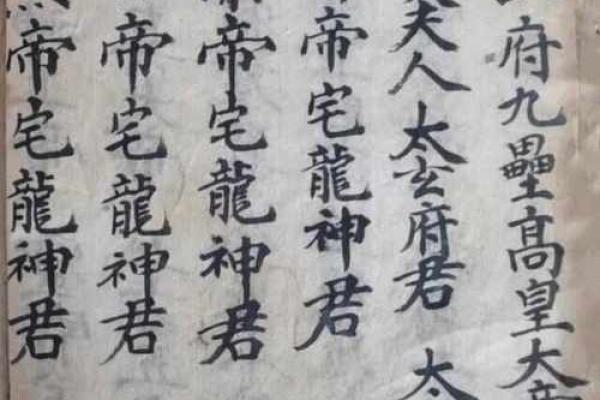 府九壘高皇大帝
夫人 太玄府君 太
帝宅龍神君
帝宅龍神君
帝宅龍神君
帝宅龍神君